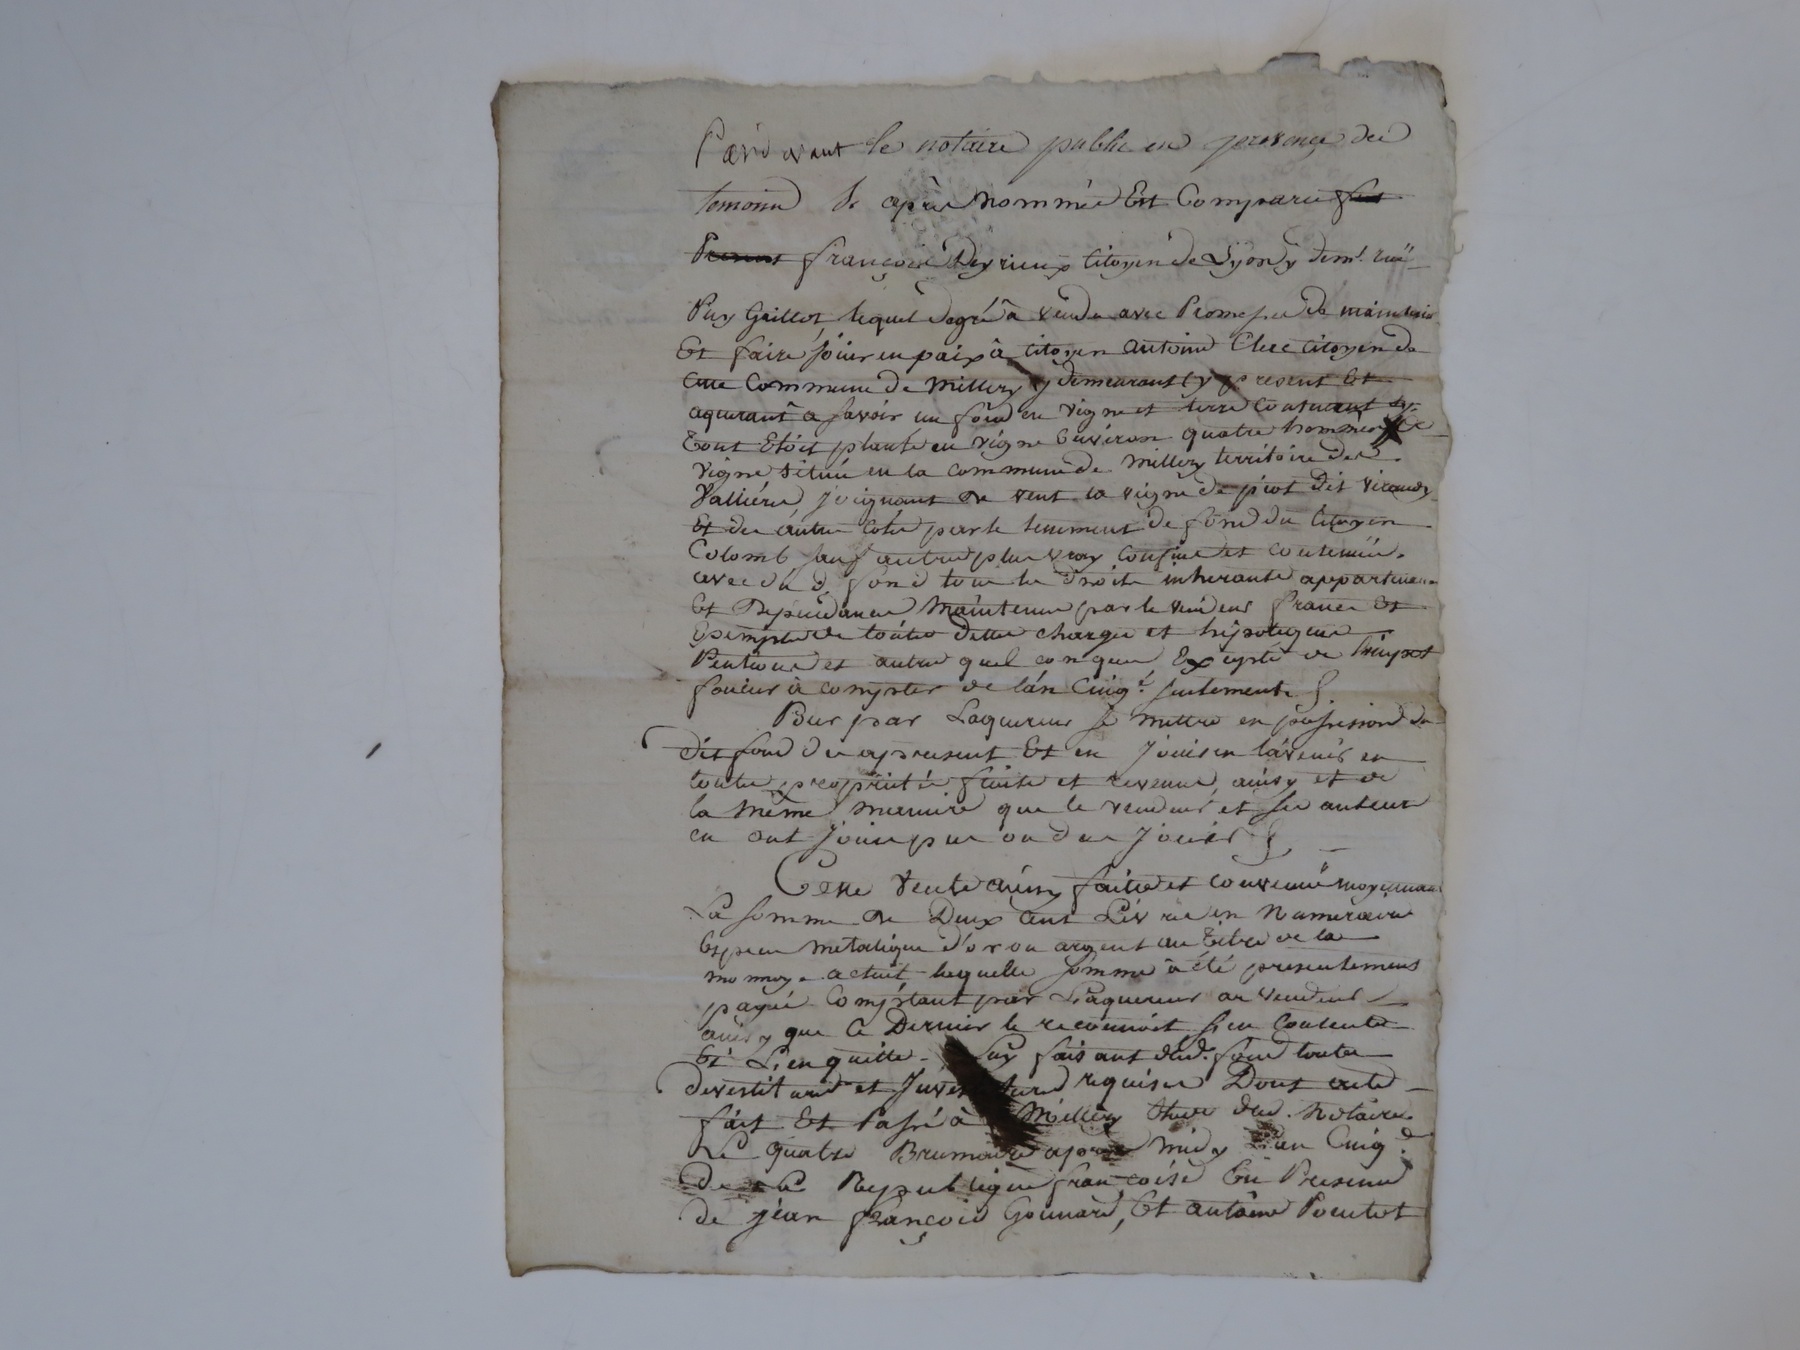 Pardevant le notaire public en presence des
temoins de après Nommés Est Comparu
françois Deyrieux citoyen de Lyon y demt. ruë
Puy Gaillot, lequel degré à vendu avec Promesse de maintenir
Et faire joüir en paix à citoyen antoine Clerc citoyen de
cette Commune de Millery y demeurant y present Et
aquerant à savoir un fond en vigne et terre contenant sy
tout Etoit planté en vigne Environ quatre hommés de
vigne situé en la commune de Millery territoire des
Vallieres, joignant de vent la vigne de piot dit
Et des autres cotés par le tenement de fond du citoyen
Colomb sauf autres plus vray confins et contenuë.
avec du d. fond tous les droits inherants appartenances
Et Dependances Maintenus par le vendeur francs Et
Exempts de toutes dettes charges et hipoteques
Pentions et autres quelconques, Excepté de l'impost
foncier à compter de l'an Cinq.e seulement
Pour par Laquereur se mettre en possession du
dit fond des apresent Et en Jouir en lavenir en
toutes proprieté fruits et revenus, ainsy et de
la Même maniere que le vendeur et ses auteurs
en ont Joui pu ou du Jouir
Cette Vente ainsy faitte et convenuë moyennant
La somme de Deux Cent Livres en Numeraire
Espece metalique d'or ou argent au titre de la
monnoye actuel, laquelle somme à été presentement
payée Comptant par L'aquereur au vendeur
ainsy que ce Dernier le reconnoit s'en Contente
Et L'en quitte - Luy faisant dud. fond toutes
devestiture et Juvestiture requises Dont acte
fait Et Passé à Millery Etude dud. Notaire
Le quatre Brumaire apres Midy L'an Cinq.e
De La Republique françoise En Presence
de jean françois Gonnard, Et antoine Poentet